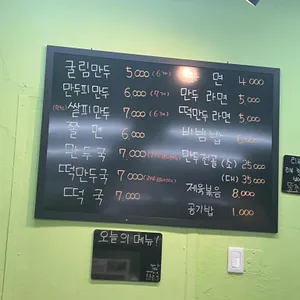 굴림만두 5,000 (6개)
만두피만두 6,000
쌀피만두 7,000
쫄 면 6,000
만두국 7,000
떡만두국 7,000
떡 국 7,000
면 4,000
만두 라면 5,000
떡만두 라면 5,000
비빔밥
만두전골 (소) 25,000
(대) 35,000
제육볶음 8,000
공기밥 1,000
오늘의 메뉴!